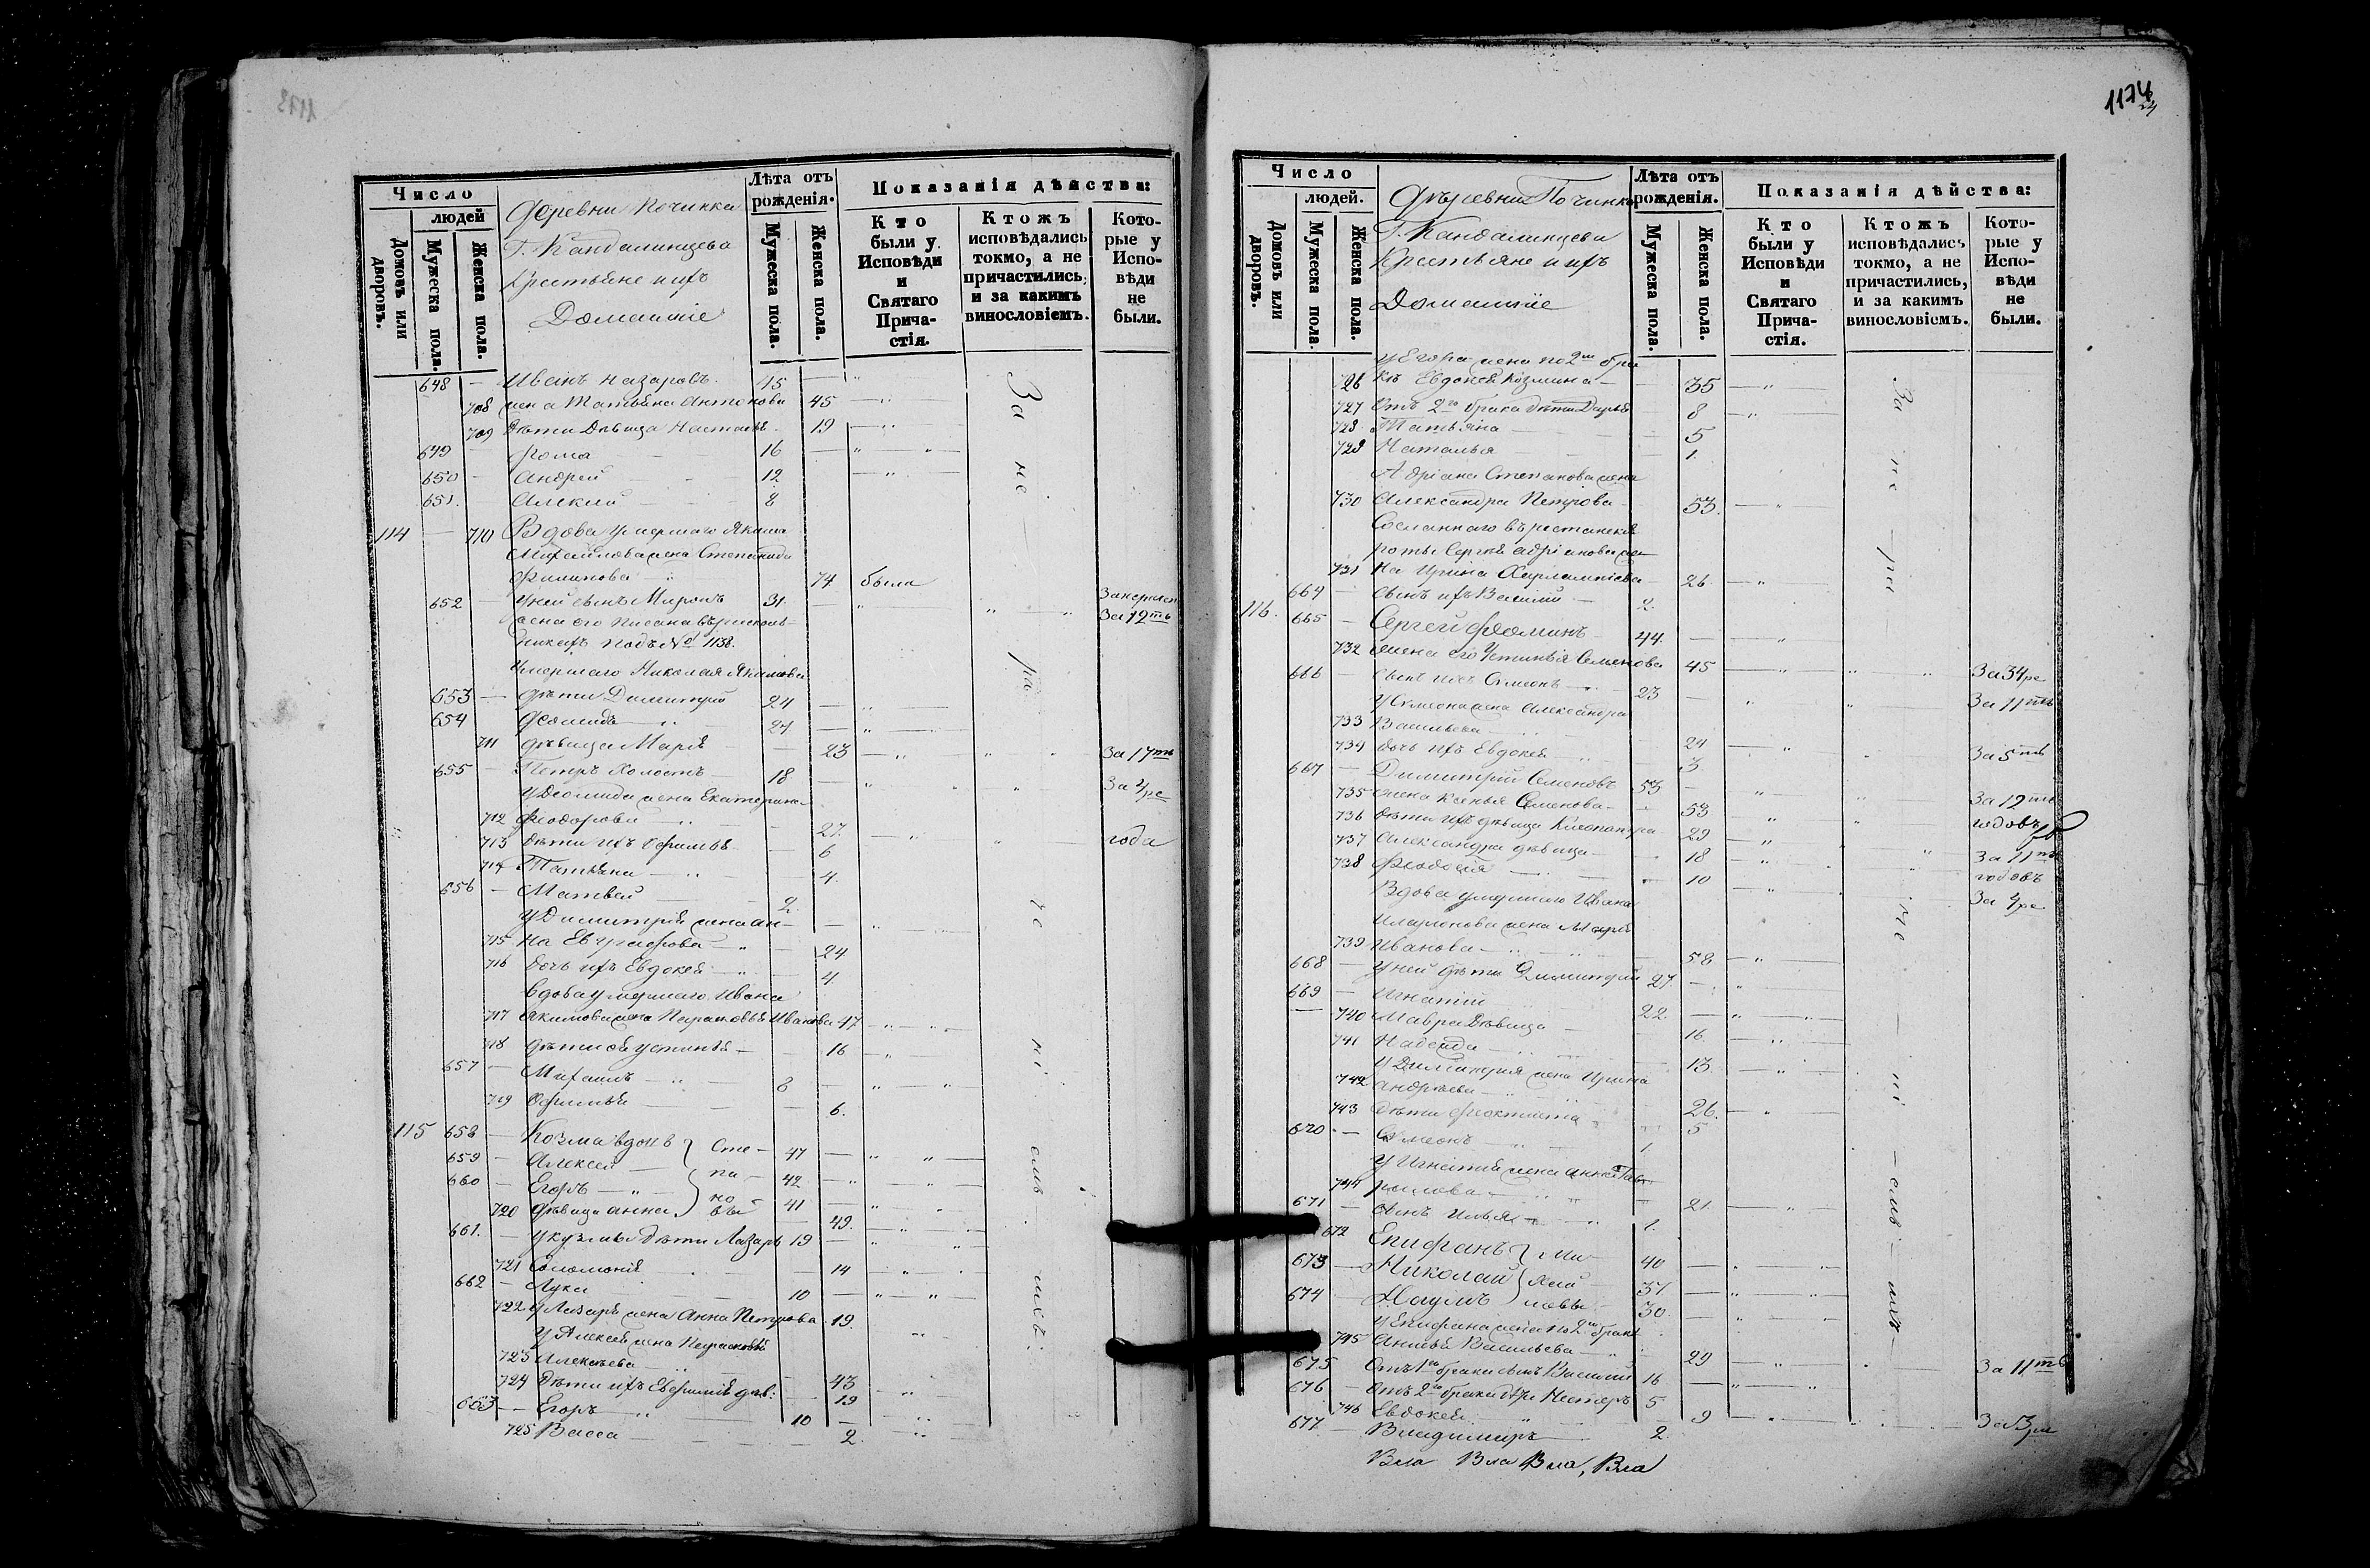 Число
людей
Домовъ или дворовъ.
Мужеска пола.
Женска пола.
Деревни Починка
Г. Кандалинцева
Крестьяне и ихъ
Домашніе
Лѣта отъ рожденія.
Мужеска пола.
Женска пола.
Показанія дѣйства:
Кто были у Исповѣди и Святаго Причастія.
Ктожъ исповѣдались токмо, а не причастились, и за какимъ винословіемъ.
Которые у Исповѣди не были.
648 — Иванъ Назаровъ 45
708 жена Татьяна Антонова 45
709 Дѣти Дѣвица Наталья 19
649 Фома 16
650 Андрей 12
651 Алексѣй 8
114 — 710 Вдова умершаго Якима
Михайлова жена Степанида
Филипова 74 была
652 У ней сынъ Миронъ 31.
жена его писана въ раскольникахъ подъ № 1138. За 12ть
Умершаго Николая Якимова
653 — дѣти Димитрій 24
654 Деомидъ 27
711 дѣвица Марія 23 За 17ть
655 Петръ холостъ 18 За 4ре
У Деомида жена Екатерина
712 Феодорова 27. года
713 Дѣти ихъ Офимья 6
714 Татьяна 4.
656 — Матвей 2.
У Димитрія жена Ан-
715 на Евграфова 24
716 дочь ихъ Евдокея 4
Вдова умершаго Ивана
717 Якимова жена Парасковья Иванова 47
718 дѣти ея Устинья 16
657 — Михаилъ 8
719 Офимья 6.
115 658 — Козма вдовъ Сте- 47
659 — Алексей па- 42
660 — Егоръ но- 41
720 дѣвица Анна въ 49.
661. — У Кузмы дѣти Лазарь 19
721 Соломонія 14
662 — Лука 10
722 У Лазаря жена Анна Петрова 19.
У Алексея жена Парасковья
723 Алексѣева 43
724 Дѣти ихъ Евфимія дѣв: 19
663 — Егоръ 10
725 Васса 2.
За не ра че ні емъ ихъ:
1174
Число
людей.
Домовъ или дворовъ.
Мужеска пола.
Женска пола.
Деревни Починка
Г. Кандалинцева
Крестьяне и ихъ
Домашніе
Лѣта отъ рожденія.
Мужеска пола.
Женска пола.
Показанія дѣйства:
Кто были у Исповѣди и Святаго Причастія.
Ктожъ исповѣдались токмо, а не причастились, и за какимъ винословіемъ.
Которые у Исповѣди не были.
У Егора жена по 2му бра
726 къ Евдокея Козмина 35
727 Отъ 2го брака дѣти Дарья 8
728 Татьяна 5
729 Наталья 1.
Адріана Степанова жена
730 Александра Петрова 53.
Сосланнаго въ рестанскія
роты Сергея Адріанова же-
731 на Ирина Харлампіева 26
664 — сынъ ихъ Василій 2.
116. 665 — Сергей Фоминъ 44.
732 жена его Устинья Семенова 45 За 34ре
666 — сынъ ихъ Симеонъ 23 За 11ть
У Симеона жена Александра
733 Васильева 24
734 дочь ихъ Евдокея 3. За 5ть
667 — Димитрій Семеновъ 53
735 жена Ксенья Семенова 53 За 12ть
736 дѣти ихъ дѣвица Клеопатра 29 годовъ
737 Александра дѣвица 18 За 11ть
738 Феодосія 10 годовъ
Вдова умершаго Ивана За 4ре
Иларіонова жена Марія
739 Иванова 58
668 — У ней дѣти Димитрій 27.
669 — Игнатій 22.
740 Мавра дѣвица 16
741 Надежда 13.
У Димитрія жена Ирина
742 Андрѣева 26.
743 Дѣти Феоктиста 5
670 — Симеонъ 1
У Игнатія жена Анна Гав-
744 рилова 21.
671 — сынъ Илья 1.
672 Епифанъ Ми- 40
673 — Николай хай- 37
674 — Наумъ ловы 30.
У Епифана жена по 2му браку
745 Анисья Васильева 29
675 Отъ 1го брака сынъ Василій 16 За 11ть
676 — Отъ 2го брака дѣти Нестеръ 5
746 Евдокея 9 За 3ри
677 — Владимиръ 2.
Вла Вла Вла, Вла
За не — ра — че — ні — емъ — ихъ —